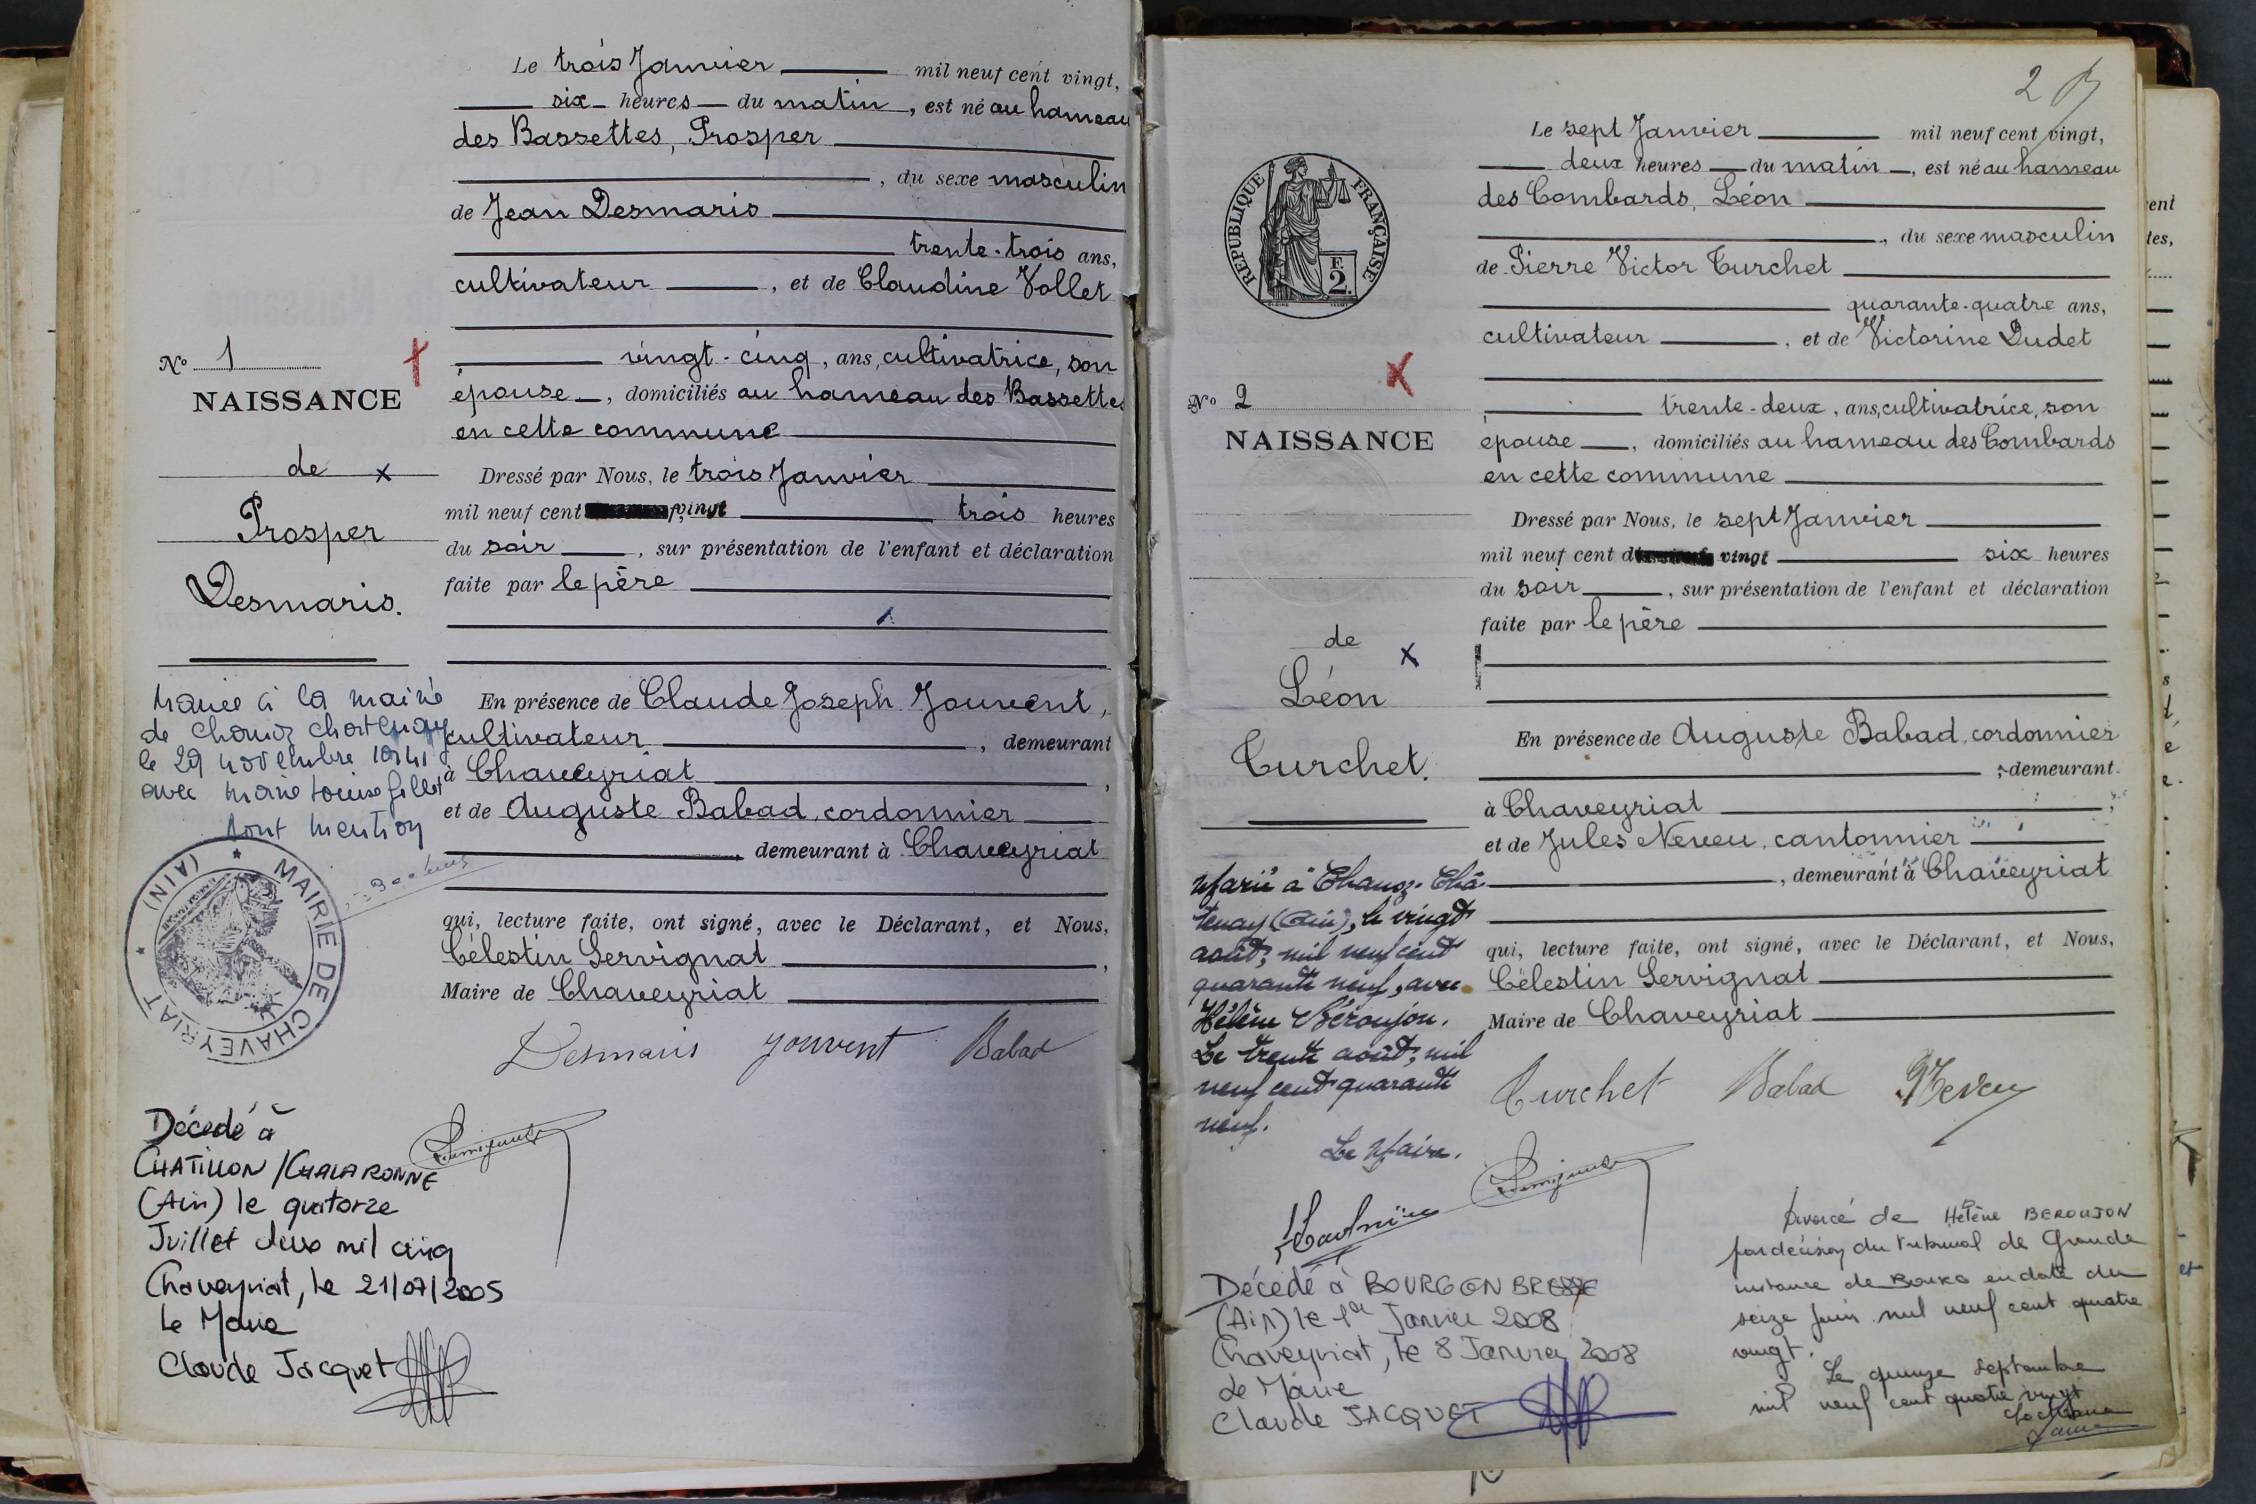 Le trois Janvier mil neuf cent vingt,
six heures du matin, est né au hameau
des Bassettes, Prosper
, du sexe masculin
de Jean Desmaris
trente-trois ans,
cultivateur, et de Claudine Vollet
vingt-cinq, ans, cultivatrice, son
épouse, domiciliés au hameau des Bassettes
en cette commune
Dressé par Nous, le trois Janvier
mil neuf cent vingt trois heures
du soir, sur présentation de l'enfant et déclaration
faite par le père
En présence de Claude Joseph Jouvent,
cultivateur, demeurant
à Chaveyriat,
et de Auguste Babad, cordonnier
, demeurant à Chaveyriat
qui, lecture faite, ont signé, avec le Déclarant, et Nous,
Célestin Servignat,
Maire de Chaveyriat
Desmaris Jouvent Babad
No 1
NAISSANCE
de x
Prosper
Desmaris.
Marié à la mairie
de Chanoz Chatenay
le 29 novembre 1941
avec Marie Louise Gillet
dont mention
MAIRIE DE CHAVEYRIAT
* (AIN) *
Décédé à
CHATILLON / CHALARONNE
(Ain) le quatorze
Juillet deux mil cinq
Chaveyriat, le 21/07/2005
Le Maire
Claude Jacquet
2
Le sept Janvier mil neuf cent vingt,
deux heures du matin, est né au hameau
des Combards, Léon
, du sexe masculin
de Pierre Victor Turchet
quarante-quatre ans,
cultivateur, et de Victorine Dudet
trente-deux, ans, cultivatrice, son
épouse, domiciliés au hameau des Combards
en cette commune
Dressé par Nous, le sept Janvier
mil neuf cent vingt six heures
du soir, sur présentation de l'enfant et déclaration
faite par le père
En présence de Auguste Babad, cordonnier
, demeurant
à Chaveyriat,
et de Jules Neveu, cantonnier
, demeurant à Chaveyriat
qui, lecture faite, ont signé, avec le Déclarant, et Nous,
Célestin Servignat
Maire de Chaveyriat
Turchet Babad Neveu
RÉPUBLIQUE FRANÇAISE
E.
2.
No 2
NAISSANCE
de x
Léon
Turchet.
Marié à Chanoz-Châ-
tenay (Ain), le vingt
août, mil neuf cent
quarante neuf, avec
Hélène Béroujon.
Le trente août, mil
neuf cent quarante
neuf.
Le Maire.
Décédé à BOURG EN BRESSE
(Ain) le 1er Janvier 2008
Chaveyriat, le 8 Janvier 2008
Le Maire
Claude JACQUET
Divorcé de Hélène BEROUJON
par décision du tribunal de Grande
instance de BOURG en date du
seize juin mil neuf cent quatre
vingt.
Le quinze septembre
mil neuf cent quatre vingt